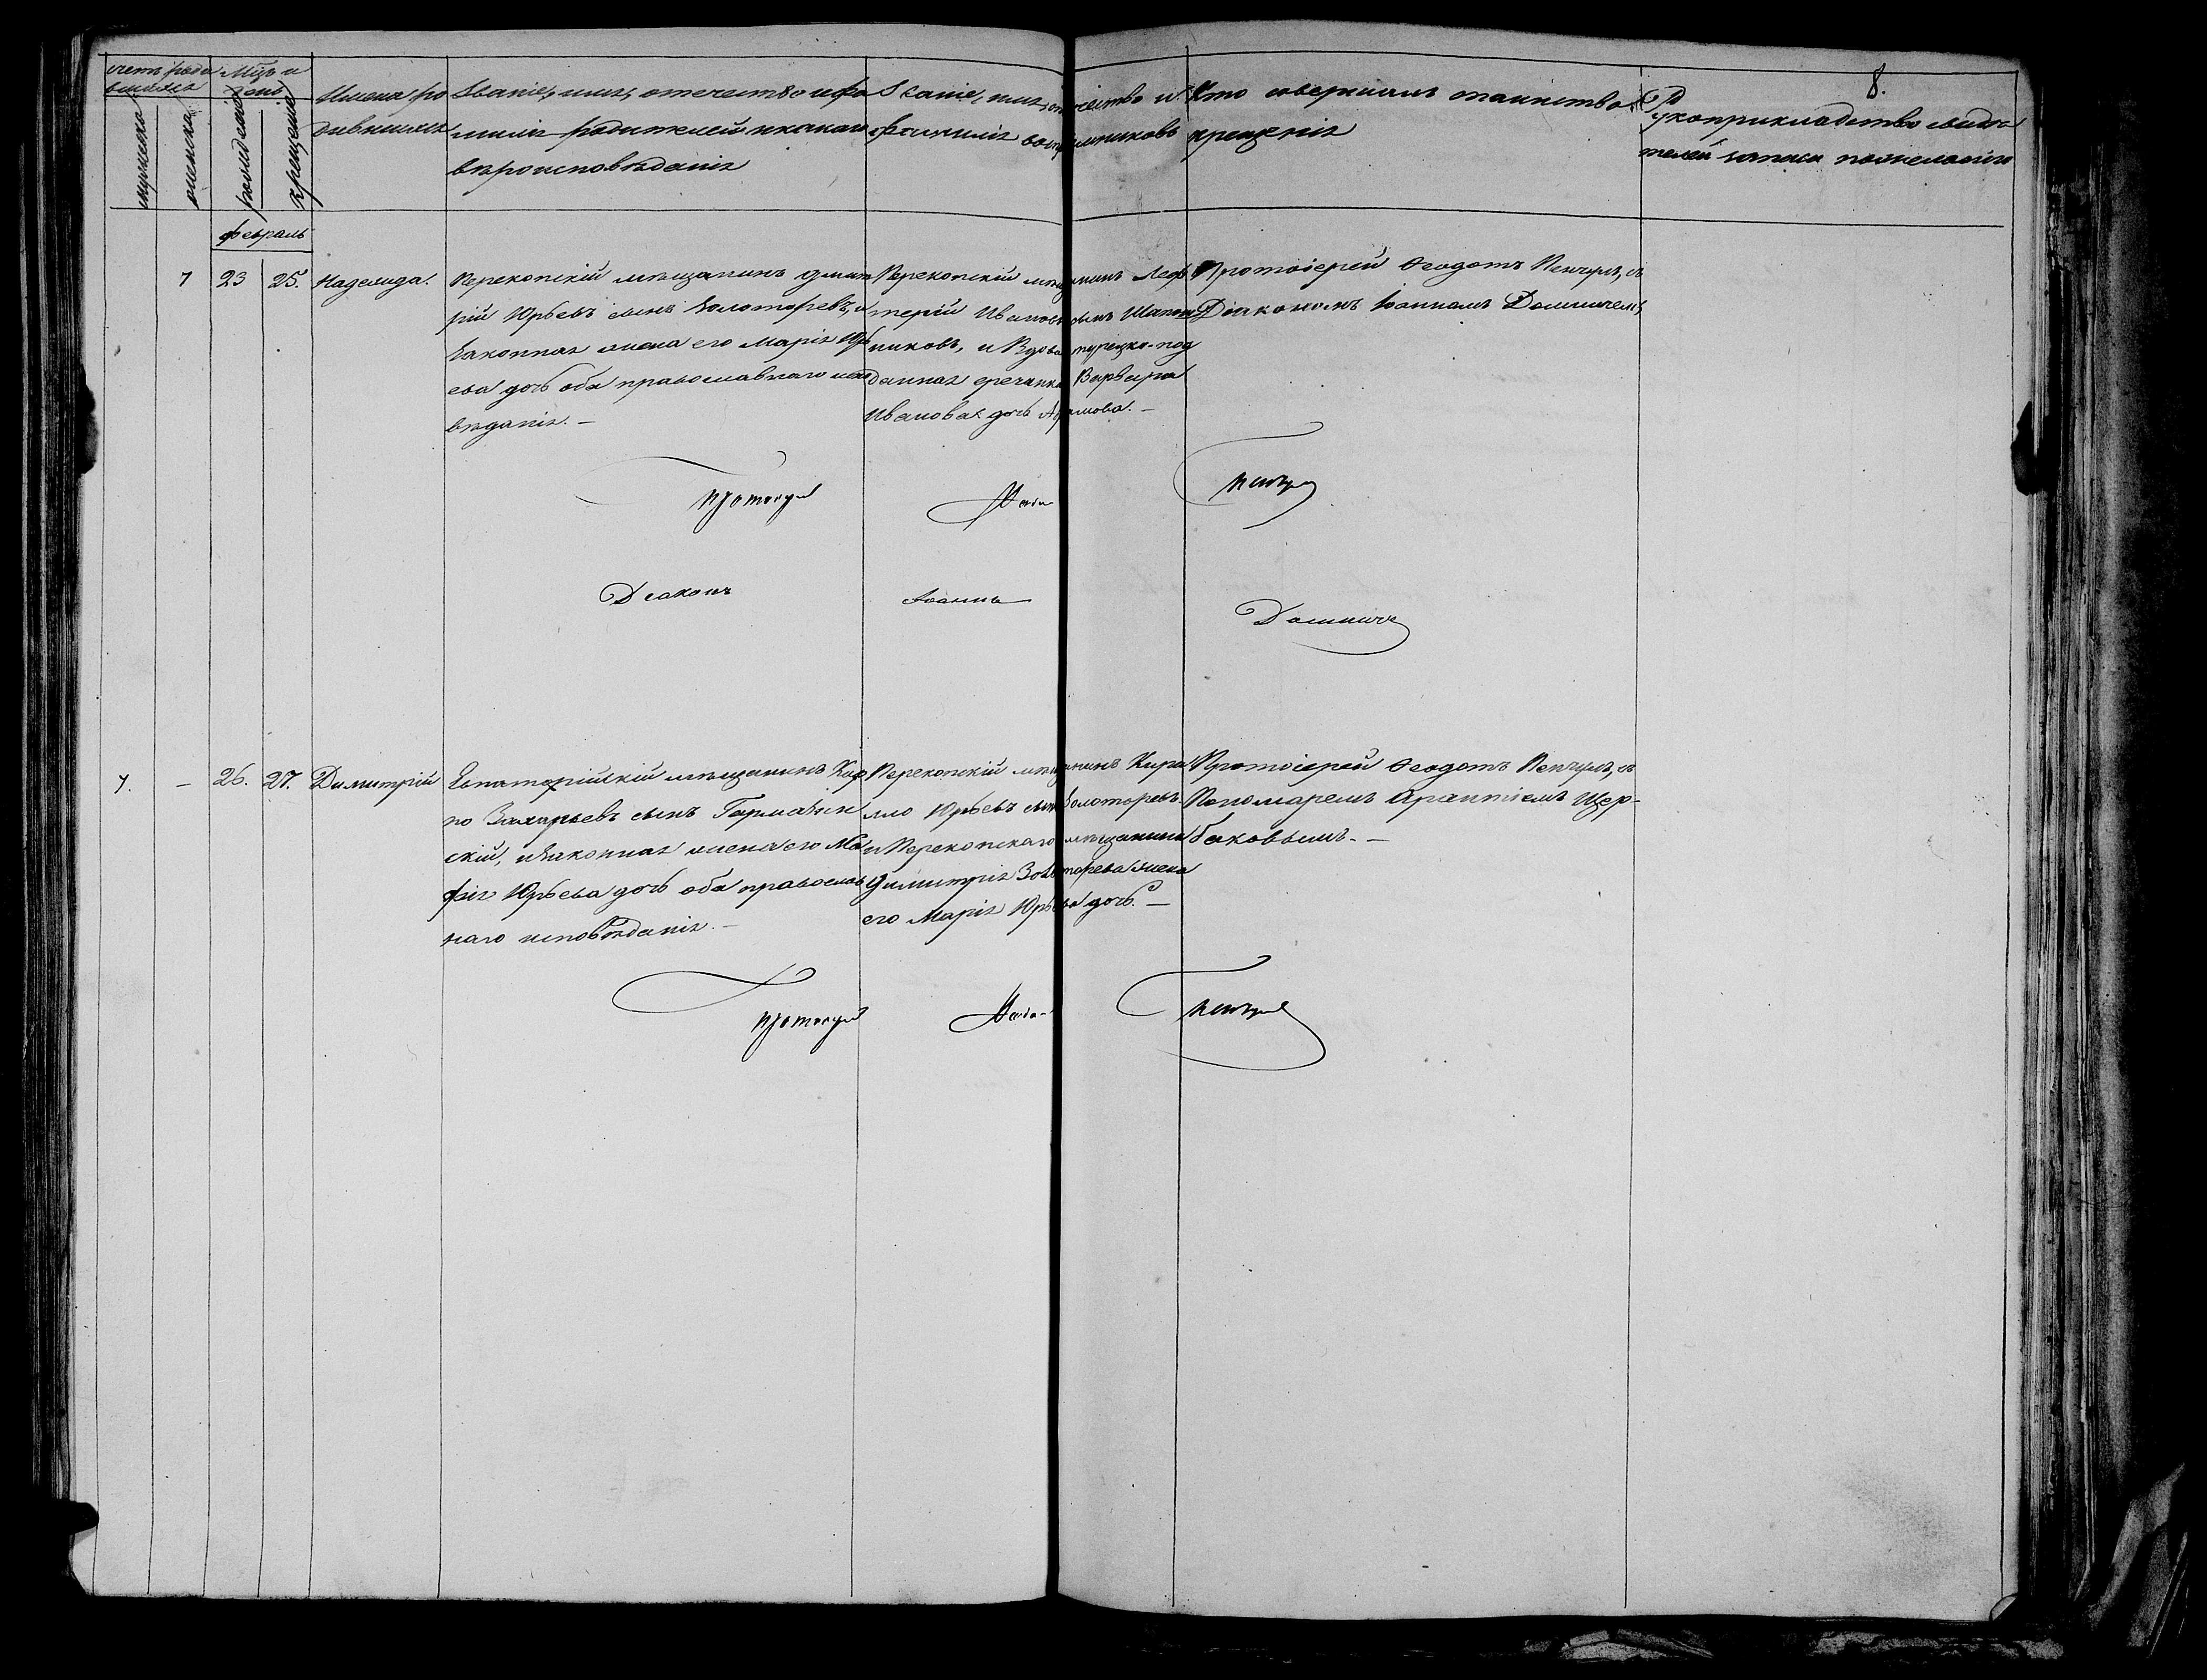 8.
счетъ роди
вшихся
Мѣсъ и
день
мужеска
женска
рожденія
крещенія
Имена ро
дившихся
Званіе, имя, отечество и фа
милія родителей и какого
вѣроисповѣданія
Званіе, имя, отечество и
фамилія воспріемниковъ
Кто совершалъ таинство
крещенія
Рукоприкладство свидѣ
телей записи по желанію
Февраль
7 23 25. Надежда.
Перекопскій мѣщанинъ Дмит
рій Юрьевъ сынъ Золотаревъ, и
Законная жена его Марія Юрь
ева дочь оба православнаго испо
вѣданія. —
Перекопскій мѣщанинъ Леф
терій Ивановъ сынъ
никовъ, и Вдова турецко-под
данная гречанка Варвара
Иванова дочь
Протоіерей Ѳеодотъ Пенчулъ, съ
Діакономъ Іоанномъ
Протоіерей
Діаконъ Іоаннъ
7. — 26. 27. Димитрій
Евпаторійскій мѣщанинъ Кар
по Захарьевъ сынъ
скій, и Законная жена его Ма
рія Юрьева дочь оба православ
наго исповѣданія. —
Перекопскій мѣщанинъ Кири
лло Юрьевъ сынъ Золотаревъ
и Перекопскаго мѣщанина
Димитрія Золотарева жена
его Марія Юрьева дочь. —
Протоіерей Ѳеодотъ Пенчулъ, съ
Пономаремъ Щер-
баковымъ. —
Протоіерей